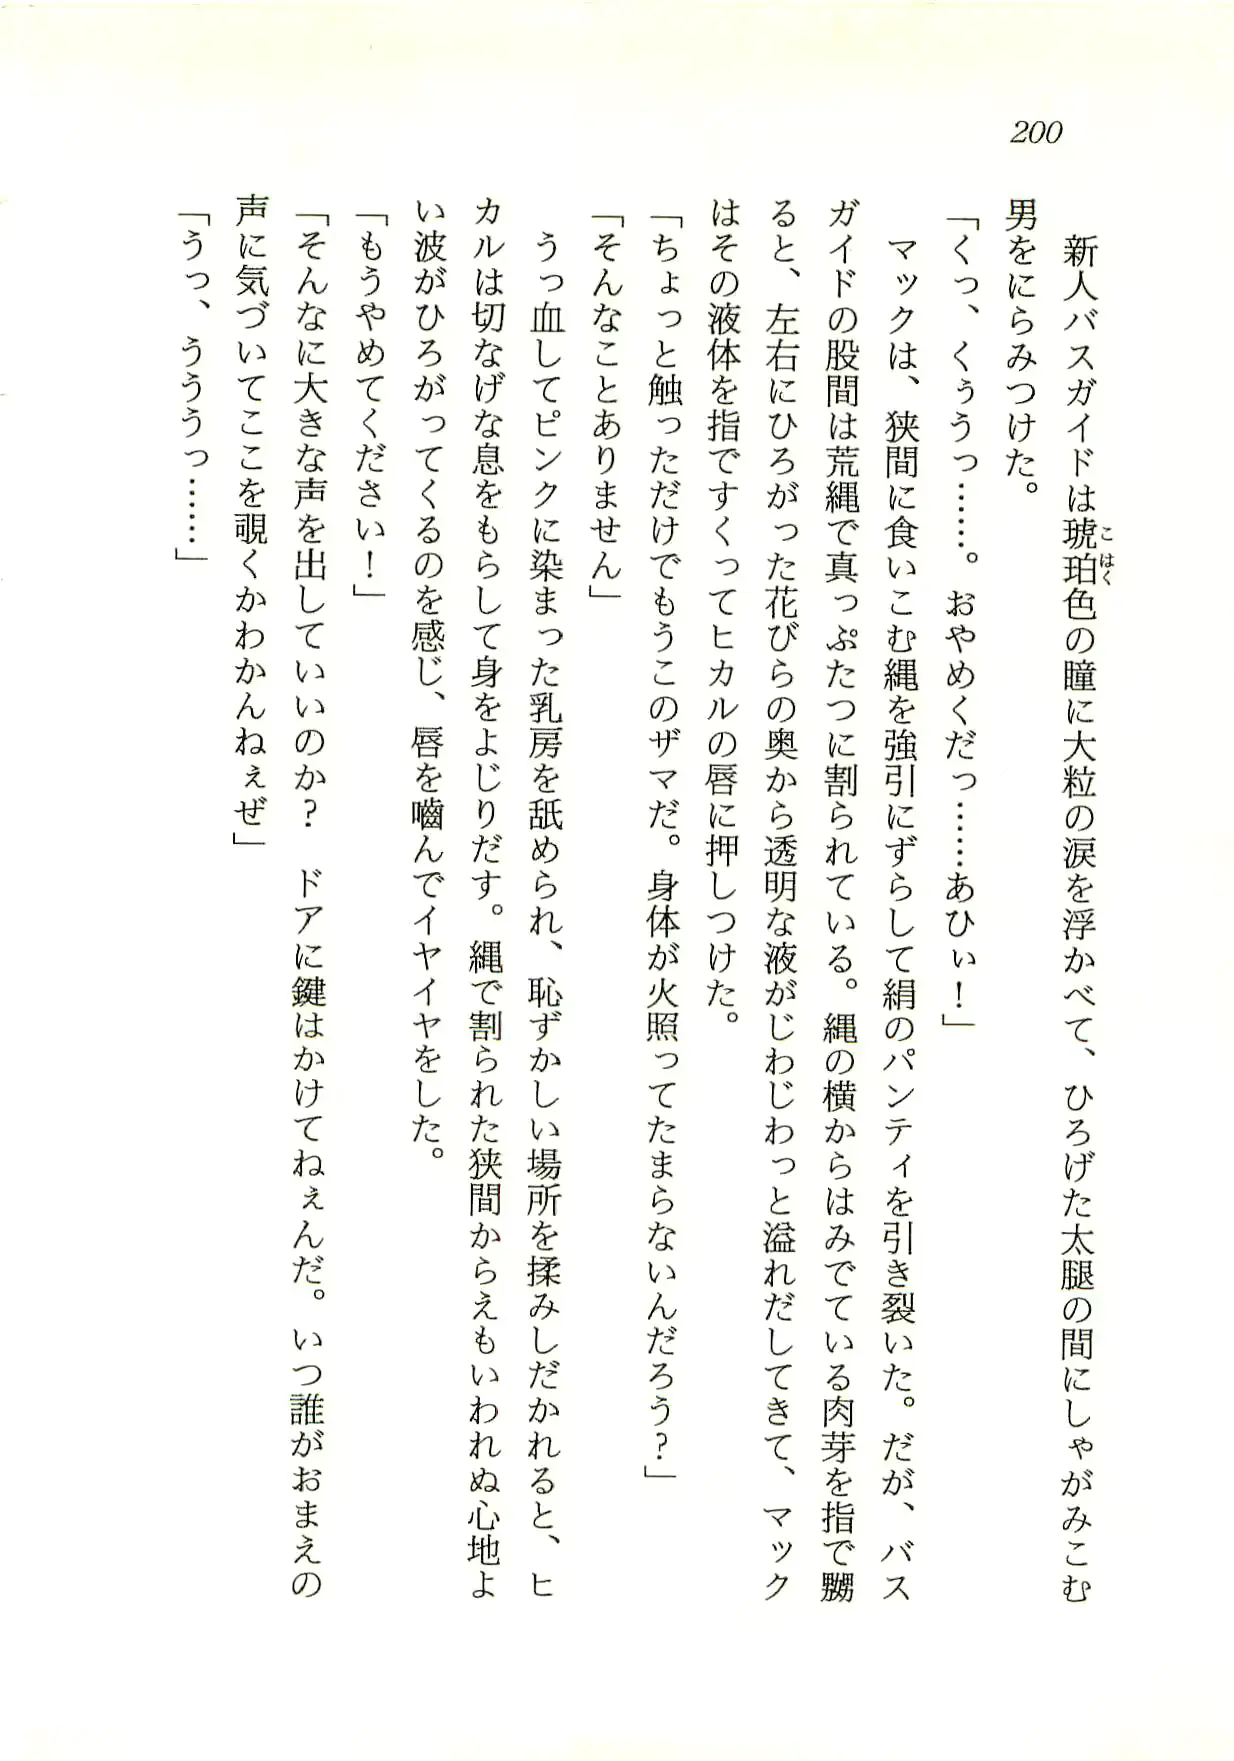 200
新人バスガイドは琥珀色の瞳に大粒の涙を浮かべて、ひろげた太腿の間にしゃがみこむ
男をにらみつけた。
「くっ、くぅうっ……。おやめくだっ……あひぃ！」
マックは、狭間に食いこむ縄を強引にずらして絹のパンティを引き裂いた。だが、バス
ガイドの股間は荒縄で真っぷたつに割られている。縄の横からはみでている肉芽を指で嬲
ると、左右にひろがった花びらの奥から透明な液がじわじわっと溢れだしてきて、マック
はその液体を指ですくってヒカルの唇に押しつけた。
「ちょっと触っただけでもうこのザマだ。身体が火照ってたまらないんだろう？」
「そんなことありません」
うっ血してピンクに染まった乳房を舐められ、恥ずかしい場所を揉みしだかれると、ヒ
カルは切なげな息をもらして身をよじりだす。縄で割られた狭間からえもいわれぬ心地よ
い波がひろがってくるのを感じ、唇を嚙んでイヤイヤをした。
「もうやめてください！」
「そんなに大きな声を出していいのか？　ドアに鍵はかけてねぇんだ。いつ誰がおまえの
声に気づいてここを覗くかわかんねぇぜ」
「うっ、うううっ……」